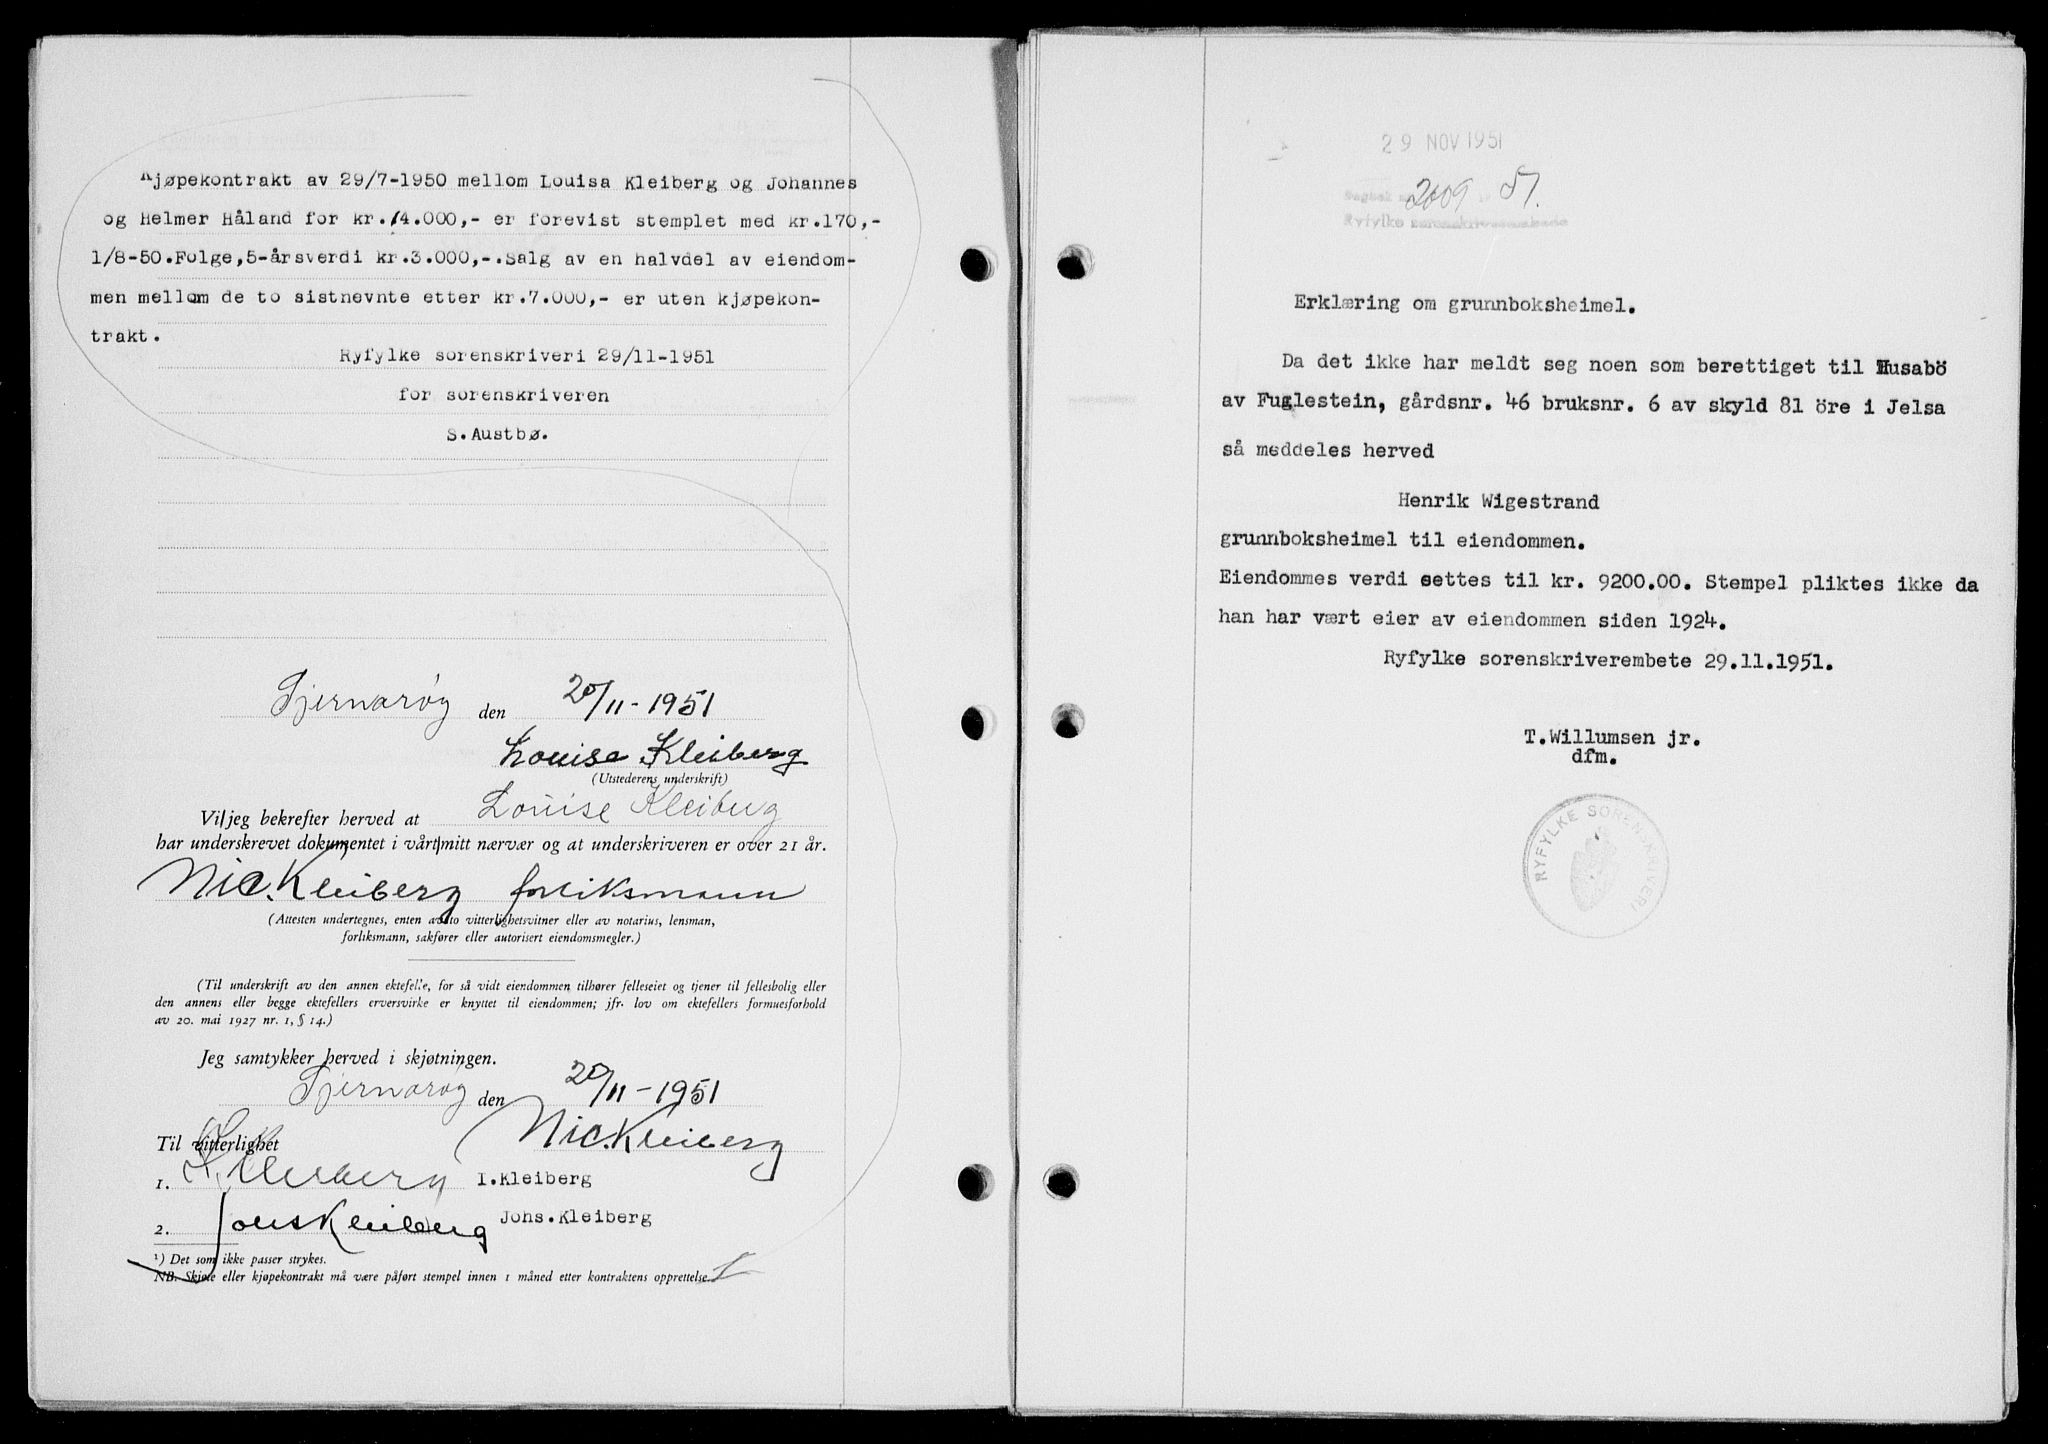 Kjøpekontrakt av 29/7-1950 mellom Louisa Kleiberg og Johannes
og Helmer Håland for kr.14.000,- er forevist stemplet med kr.170,-
1/8-50.Folge,5-årsverdi kr.3.000,-.Salg av en halvdel av eiendom-
men mellom de to sistnevnte etter kr.7.000,- er uten kjøpekon-
trakt.
Ryfylke sorenskriveri 29/11-1951
for sorenskriveren
S.Austbø.
Sjernarøy den 20/11-1951
Louise Kleiberg
(Utstederens underskrift)
Vi/jeg bekrefter herved at Louise Kleiberg
har underskrevet dokumentet i vårt/mitt nærvær og at underskriveren er over 21 år.
Nic. Kleiberg forliksmann
(Attesten undertegnes, enten av to vitterlighetsvitner eller av notarius, lensman,
forliksmann, sakfører eller autorisert eiendomsmegler.)
(Til underskrift av den annen ektefelle, for så vidt eiendommen tilhører felleseiet og tjener til fellesbolig eller
den annens eller begge ektefellers erversvirke er knyttet til eiendommen; jfr. lov om ektefellers formuesforhold
av 20. mai 1927 nr. 1, § 14.)
Jeg samtykker herved i skjøtningen.
Sjernarøy den 20/11-1951
Til vitterlighet Nic. Kleiberg
1. I. Kleiberg I.Kleiberg
2. Johs Kleiberg Johs.Kleiberg
¹) Det som ikke passer strykes.
NB. Skjøte eller kjøpekontrakt må være påført stempel innen 1 måned etter kontraktens opprettelse.
29 NOV 1951
Dagbok nr. 2009 19 51.
Ryfylke sorenskriverembete
Erklæring om grunnboksheimel.
Da det ikke har meldt seg noen som berettiget til Husabö
av Fuglestein, gårdsnr. 46 bruksnr. 6 av skyld 81 öre i Jelsa
så meddeles herved
Henrik Wigestrand
grunnboksheimel til eiendommen.
Eiendommes verdi settes til kr. 9200.00. Stempel pliktes ikke da
han har vært eier av eiendommen siden 1924.
Ryfylke sorenskriverembete 29.11.1951.
T.Willumsen jr.
dfm.
RYFYLKE SORENSKRIVERI